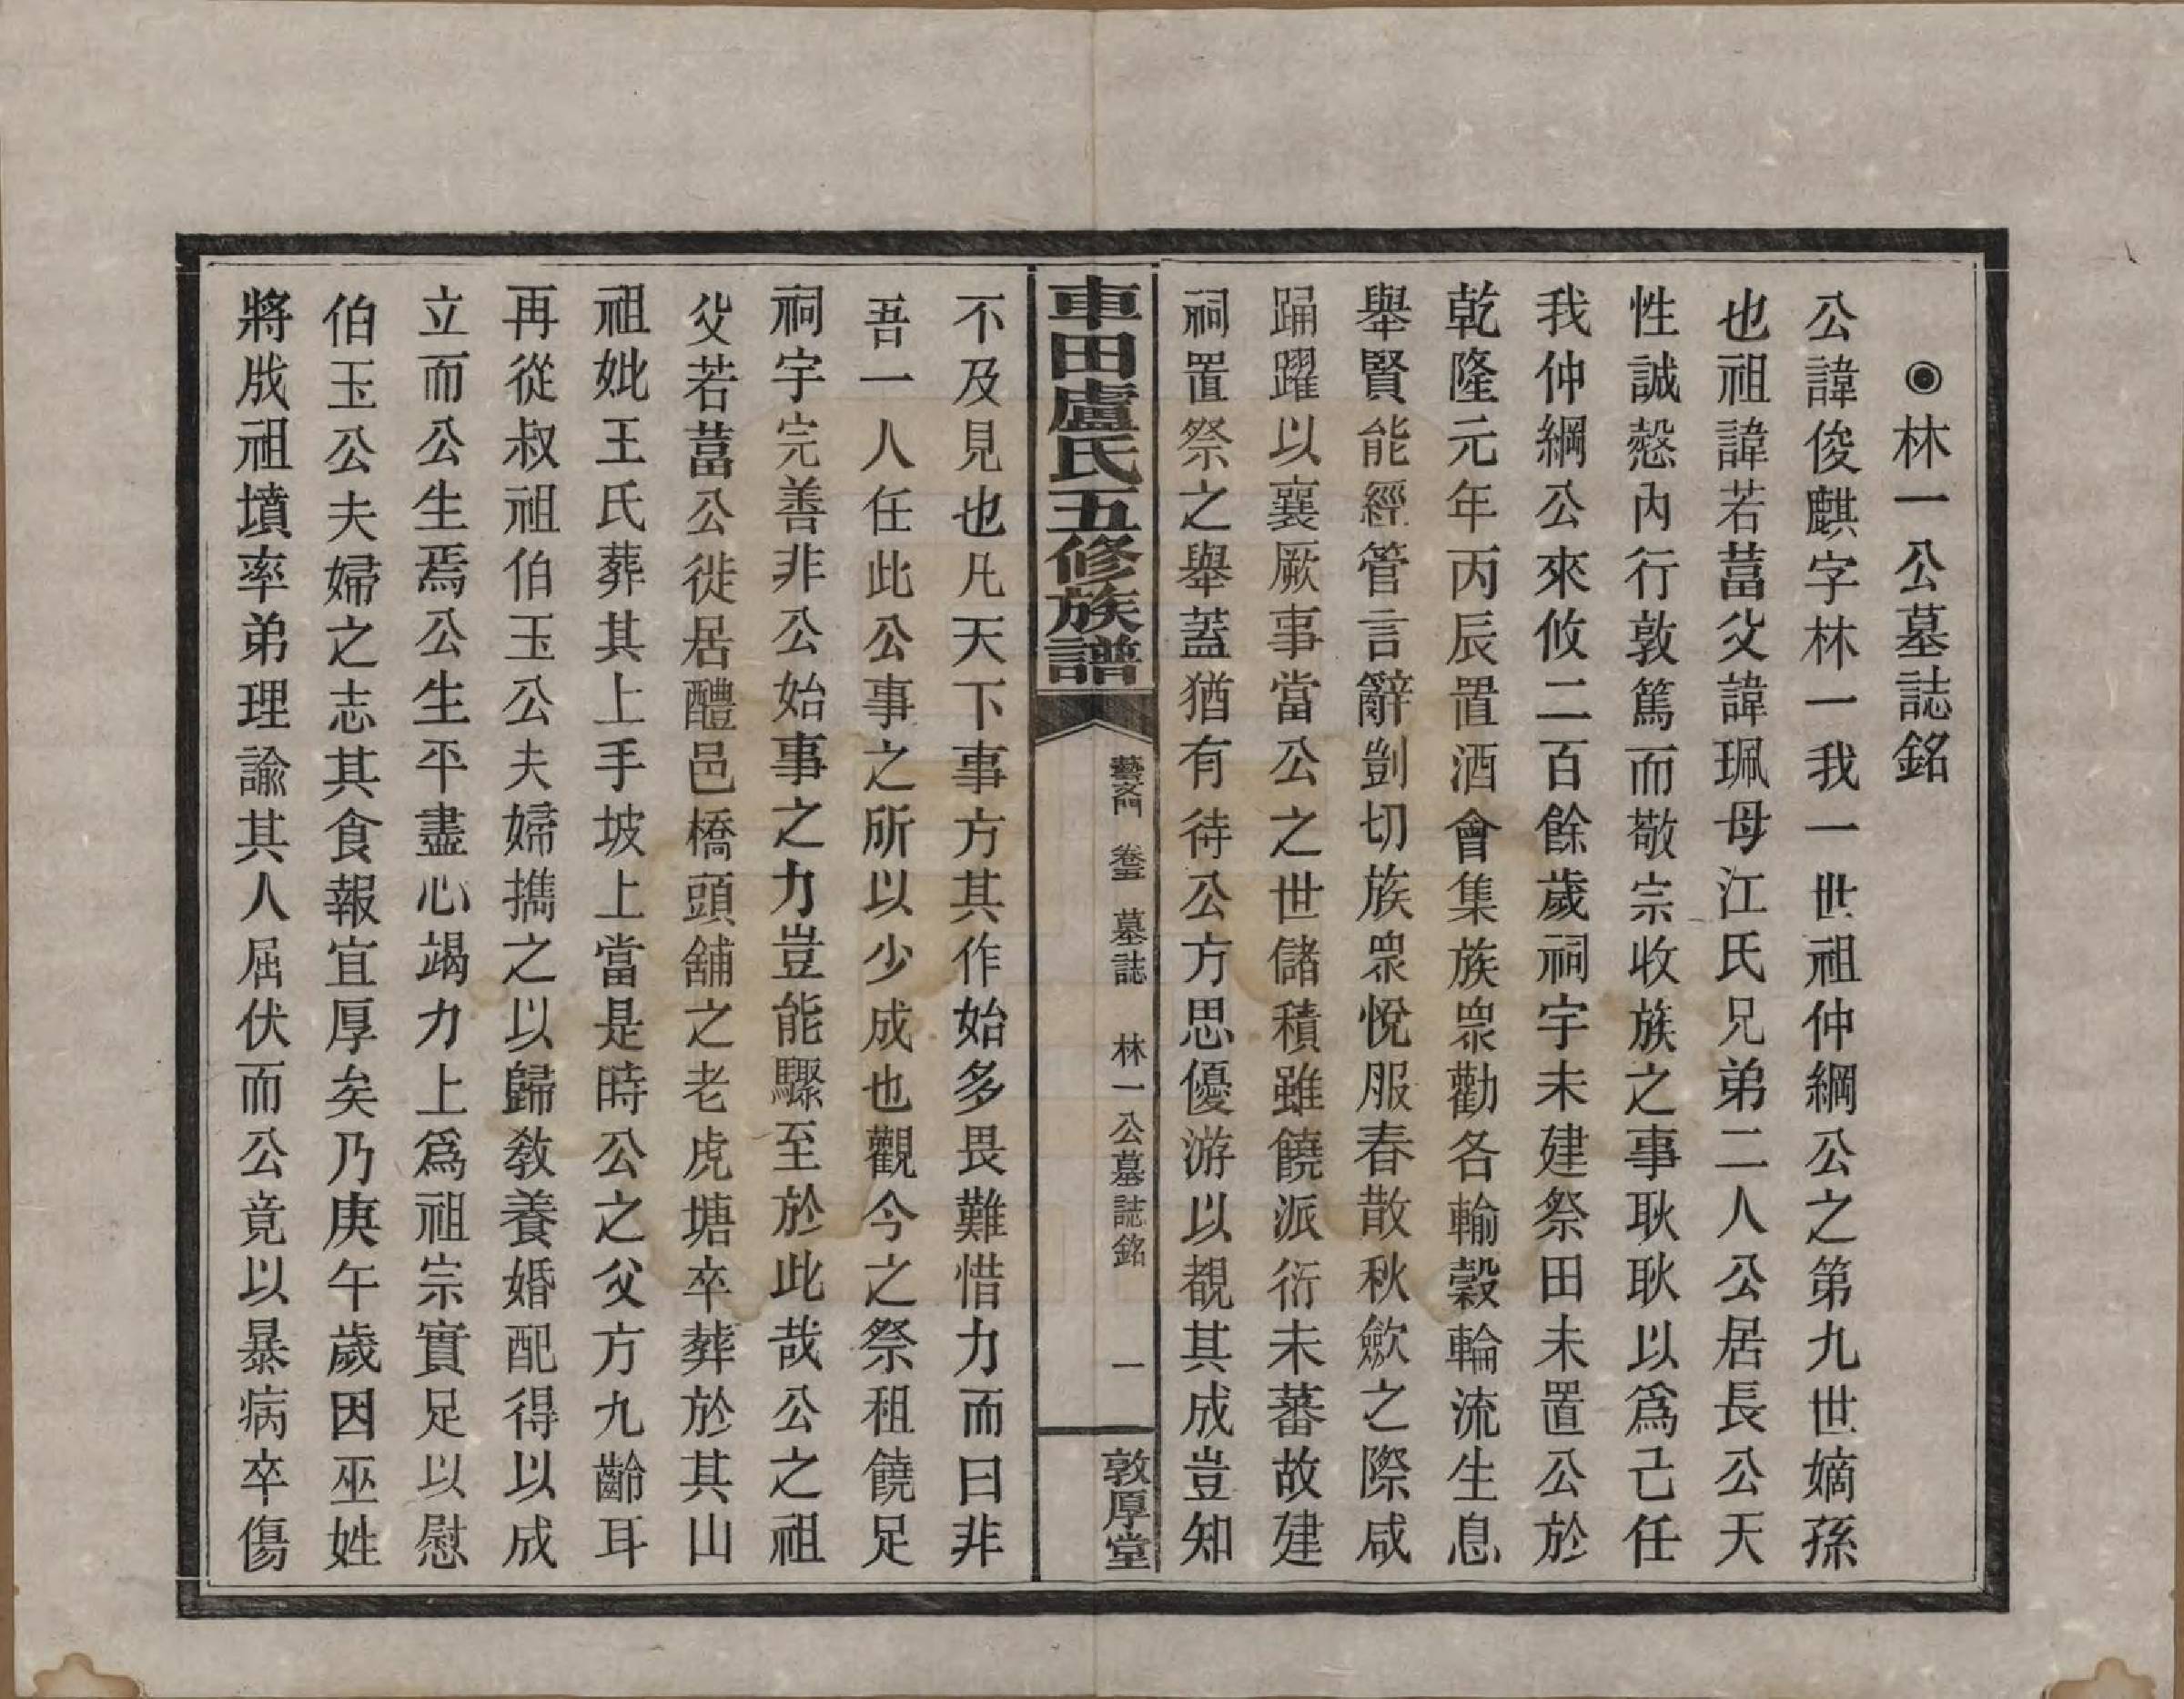 ◉林一公墓誌銘
公諱俊麒字林一我一世祖仲綱公之第九世嫡孫
也祖諱若菖父諱珮母江氏兄弟二人公居長公天
性誠慤內行敦篤而敬宗收族之事耿耿以爲己任
我仲綱公來攸二百餘歲祠宇未建祭田未置公於
乾隆元年丙辰置酒會集族眾勸各輸穀輪流生息
舉賢能經管言辭剴切族眾悅服春散秋歛之際咸
踊躍以襄厥事當公之世儲積雖饒派衍未蕃故建
祠置祭之舉蓋猶有待公方思優游以覩其成豈知
車田盧氏五修族譜
藝文門 卷五 墓誌 林一公墓誌銘 一
敦厚堂
不及見也凡天下事方其作始多畏難惜力而曰非
吾一人任此公事之所以少成也觀今之祭租饒足
祠宇完善非公始事之力豈能驟至於此哉公之祖
父若菖公徙居醴邑橋頭舖之老虎塘卒葬於其山
祖妣王氏葬其上手坡上當是時公之父方九齡耳
再從叔祖伯玉公夫婦攜之以歸教養婚配得以成
立而公生焉公生平盡心竭力上爲祖宗實足以慰
伯玉公夫婦之志其食報宜厚矣乃庚午歲因巫姓
將戕祖墳率弟理諭其人屈伏而公竟以暴病卒傷